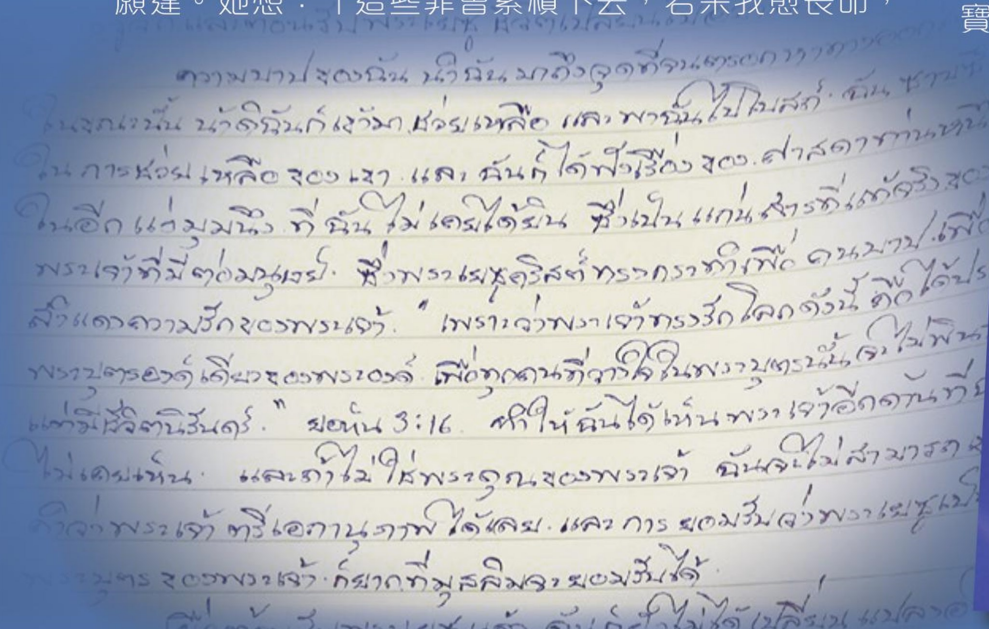 願達。她想：「這些罪會累積下去，若果我愈長命，
寶
ความบาปของฉัน นำฉันมาถึงจุดที่จน
ในขณะนั้น น้าดิฉันก็เข้ามาช่วยเหลือ และพาฉันไปโบสถ์. ฉัน
ในการช่วยเหลือของเขา. และฉันก็ได้ฟังเรื่องของศาสดาท่านหนึ่
ในอีกแง่มุมนึง ที่ฉันไม่เคยได้ยิน ซึ่งเป็นแก่นสารที่แท้จริงของ
พระเจ้าที่มีต่อมนุษย์. ซึ่งพระเยซูคริสต์ทรงกระทำเพื่อคนบาป. เพื่อ
สำแดงความรักของพระเจ้า. " เพราะว่าพระเจ้าทรงรักโลกดังนี้ คือได้ประ
พระบุตรองค์เดียวของพระองค์. เพื่อทุกคนที่วางใจในพระบุตรนั้นจะไม่พินา
แต่มีชีวิตนิรันดร์. " ยอห์น 3:16. ทำให้ฉันได้เห็นพระเจ้าอีกด้านที่
ไม่เคยเห็น. และถ้าไม่ใช่พระคุณของพระเจ้า ฉันจะไม่สามารถ
คำว่าพระเจ้าตรีเอกานุภาพได้เลย. และการยอมรับว่าพระเยซูเป็น
พระบุตรของพระเจ้า. ก็ยากที่มุสลิมจะยอมรับได้.